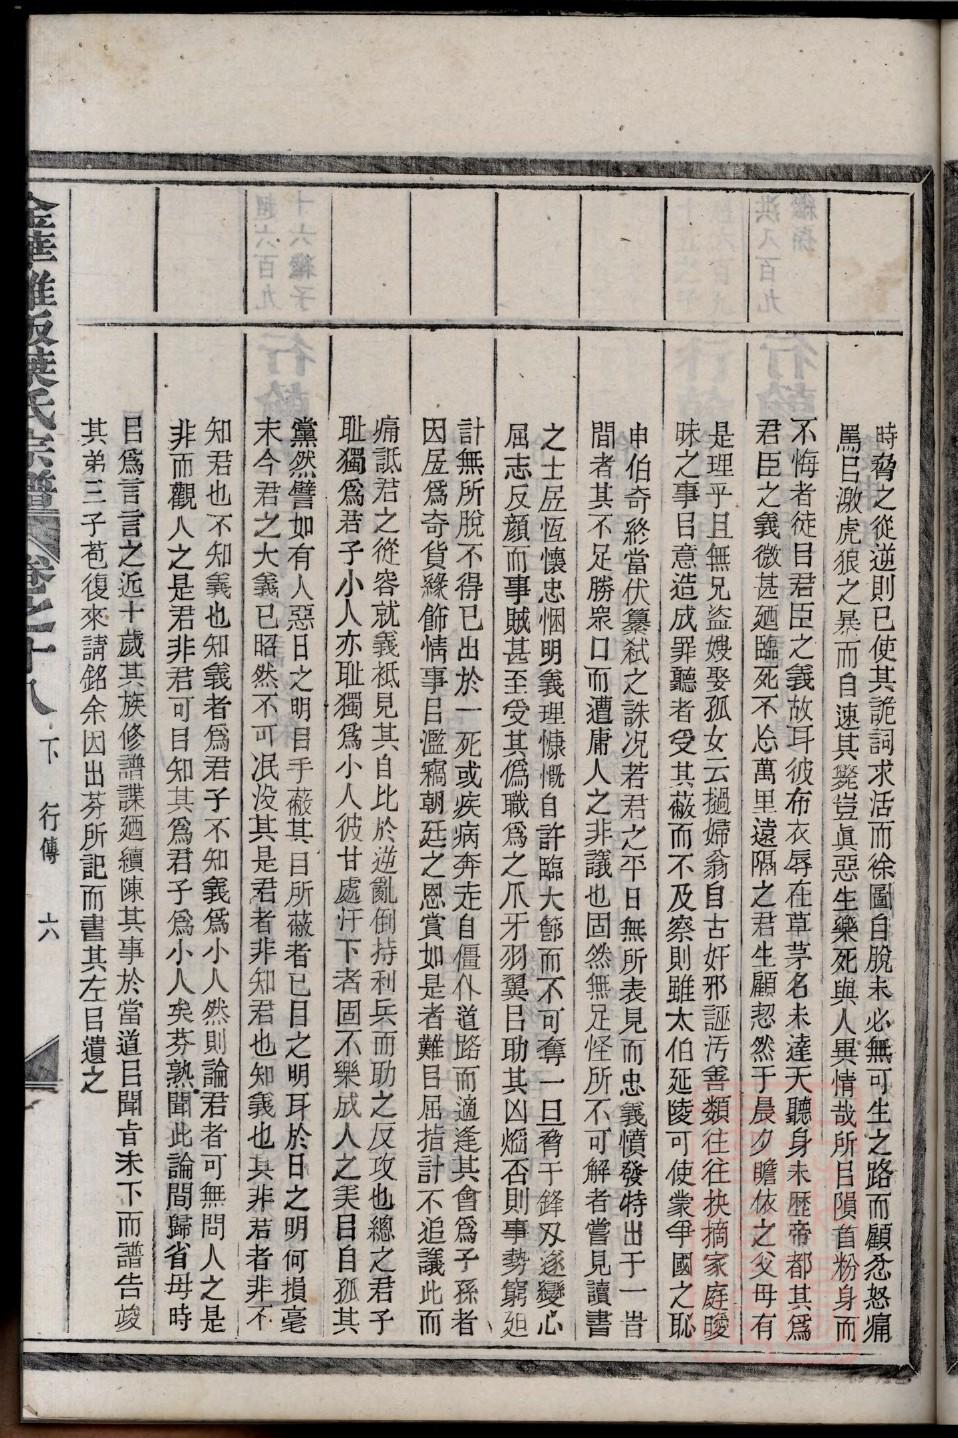 時脅之從逆則已使其詭詞求活而徐圖自脫未必無可生之路而顧忿怒痛
罵㠯激虎狼之暴而自速其斃豈眞惡生樂死與人異情哉所㠯隕首粉身而
不悔者徒㠯君臣之義故耳彼布衣辱在草茅名未達天聽身未歷帝都其爲
君臣之義微甚廼臨死不忘萬里遠隔之君生顧恝然于晨夕瞻依之父母有
是理乎且無兄盜嫂娶孤女云撾婦翁自古奸邪誣汚善類往往抉摘家庭曖
昧之事㠯意造成罪聽者受其蔽而不及察則雖太伯延陵可使蒙爭國之恥
申伯奇終當伏纂弒之誅况若君之平日無所表見而忠義憤發特出于一旹
間者其不足勝衆口而遭庸人之非議也固然無足怪所不可解者嘗見讀書
之士凥恆懷忠悃明義理慷慨自許臨大節而不可奪一旦脅于鋒刄遂變心
屈志反顏而事賊甚至受其僞職爲之爪牙羽翼㠯助其凶熖否則事勢窮廹
計無所脫不得已出於一死或疾病奔走自僵仆道路而適逢其會爲子孫者
因凥爲奇貨緣飾情事㠯濫竊朝廷之恩賞如是者難㠯屈指計不追議此而
痛詆君之從容就義祗見其自比於逆亂倒持利兵而助之反攻也總之君子
耻獨爲君子小人亦耻獨爲小人彼甘處汙下者固不樂成人之美㠯自孤其
黨然譬如有人惡日之明㠯手蔽其目所蔽者已目之明耳於日之明何損毫
末今君之大義已昭然不可泯没其是君者非知君也知義也其非若者非不
知君也不知義也知義者爲君子不知義爲小人然則論君者可無問人之是
非而觀人之是君非君可㠯知其爲君子爲小人矣芬熟聞此論間歸省母時
㠯爲言言之近十歲其族修譜諜廼續陳其事於當道㠯聞旨未下而譜告竣
其弟三子苞復來請銘余因出芬所記而書其左㠯遺之
金華雅畈葉氏宗譜
卷之十八
下
行傳
六